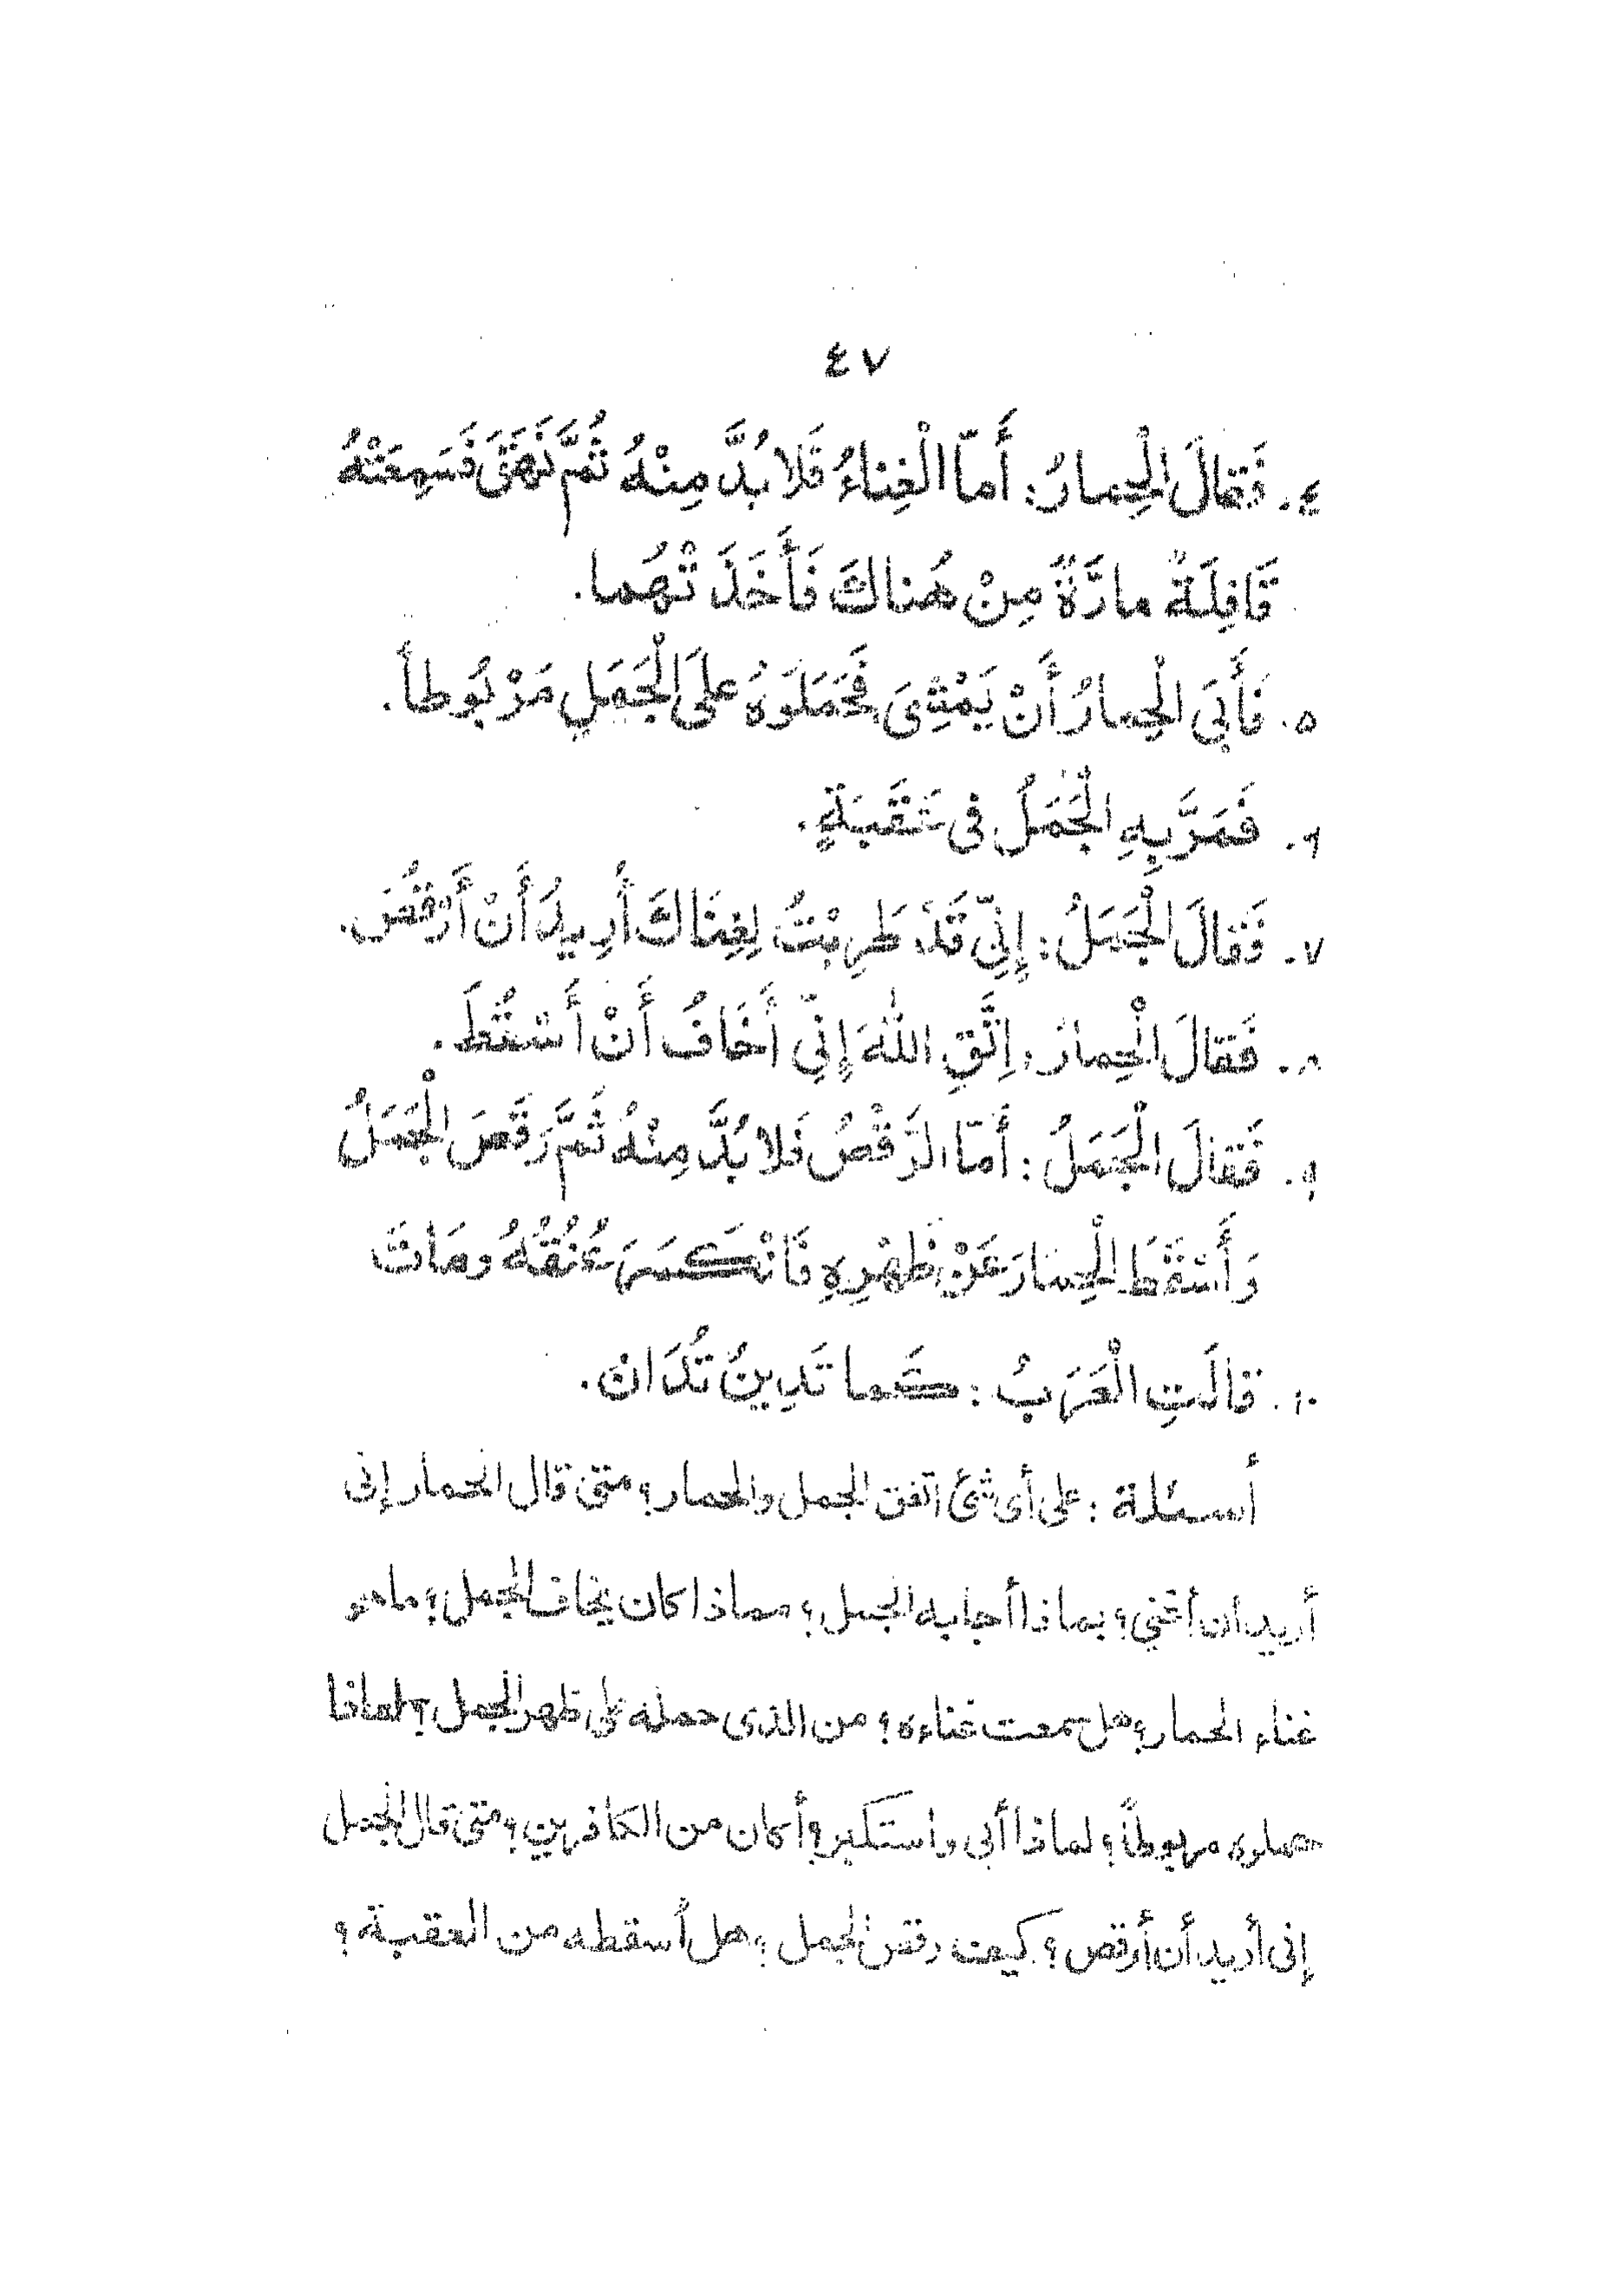 ٤٧
٤. فَقَالَ الْحِمارُ: أَمّا الْغِناءُ فَلا بُدَّ مِنْهُ ثُمَّ نَهَقَ فَسَمِعَتْهُ
قَافِلَةٌ مارَّةٌ مِنْ هُناكَ فَأَخَذَتْهُما.
٥. فَأَبَى الْحِمارُ أَنْ يَمْشِىَ فَحَمَلُوهُ عَلَى الْجَمَلِ مَرْبُوطاً.
٦. فَمَرَّ بِهِ الْجَمَلُ فى عَقَبَةٍ.
٧. فَقَالَ الْجَمَلُ: إِنِّى قَدْ طَرِبْتُ لِغِنَاكَ أُرِيدُ أَنْ أَرْقُصَ.
٨. فَقَالَ الْحِمارُ: اِتَّقِ اللهَ إِنِّى أَخَافُ أَنْ أَسْقُطَ.
٩. فَقَالَ الْجَمَلُ: أَمّا الرَّقْصُ فَلا بُدَّ مِنْهُ ثُمَّ رَقَصَ الْجَمَلُ
وَأَسْقَطَ الْحِمَارَ عَنْ ظَهْرِهِ فَانْكَسَرَ عُنُقُهُ ومَاتَ
١٠. قالَتِ الْعَرَبُ: كَما تَدِينُ تُدَانُ.
أسئلة: على أى شئ اتفق الجمل والحمار؟ متى قال الحمار إنى
أريد أن أغني؟ بماذا أجابه الجمل؟ مماذا كان يخاف الجمل؟ ما هو
غناء الحمار؟ هل سمعت غناءه؟ من الذى حمله على ظهر الجمل؟ لماذا
حملوه مربوطاً؟ لماذا أبى واستكبر؟ أكان من الكافرين؟ متى قال الجمل
إنى أريد أن أرقص؟ كيف رقص الجمل؟ هل أسقطه من العقبة؟